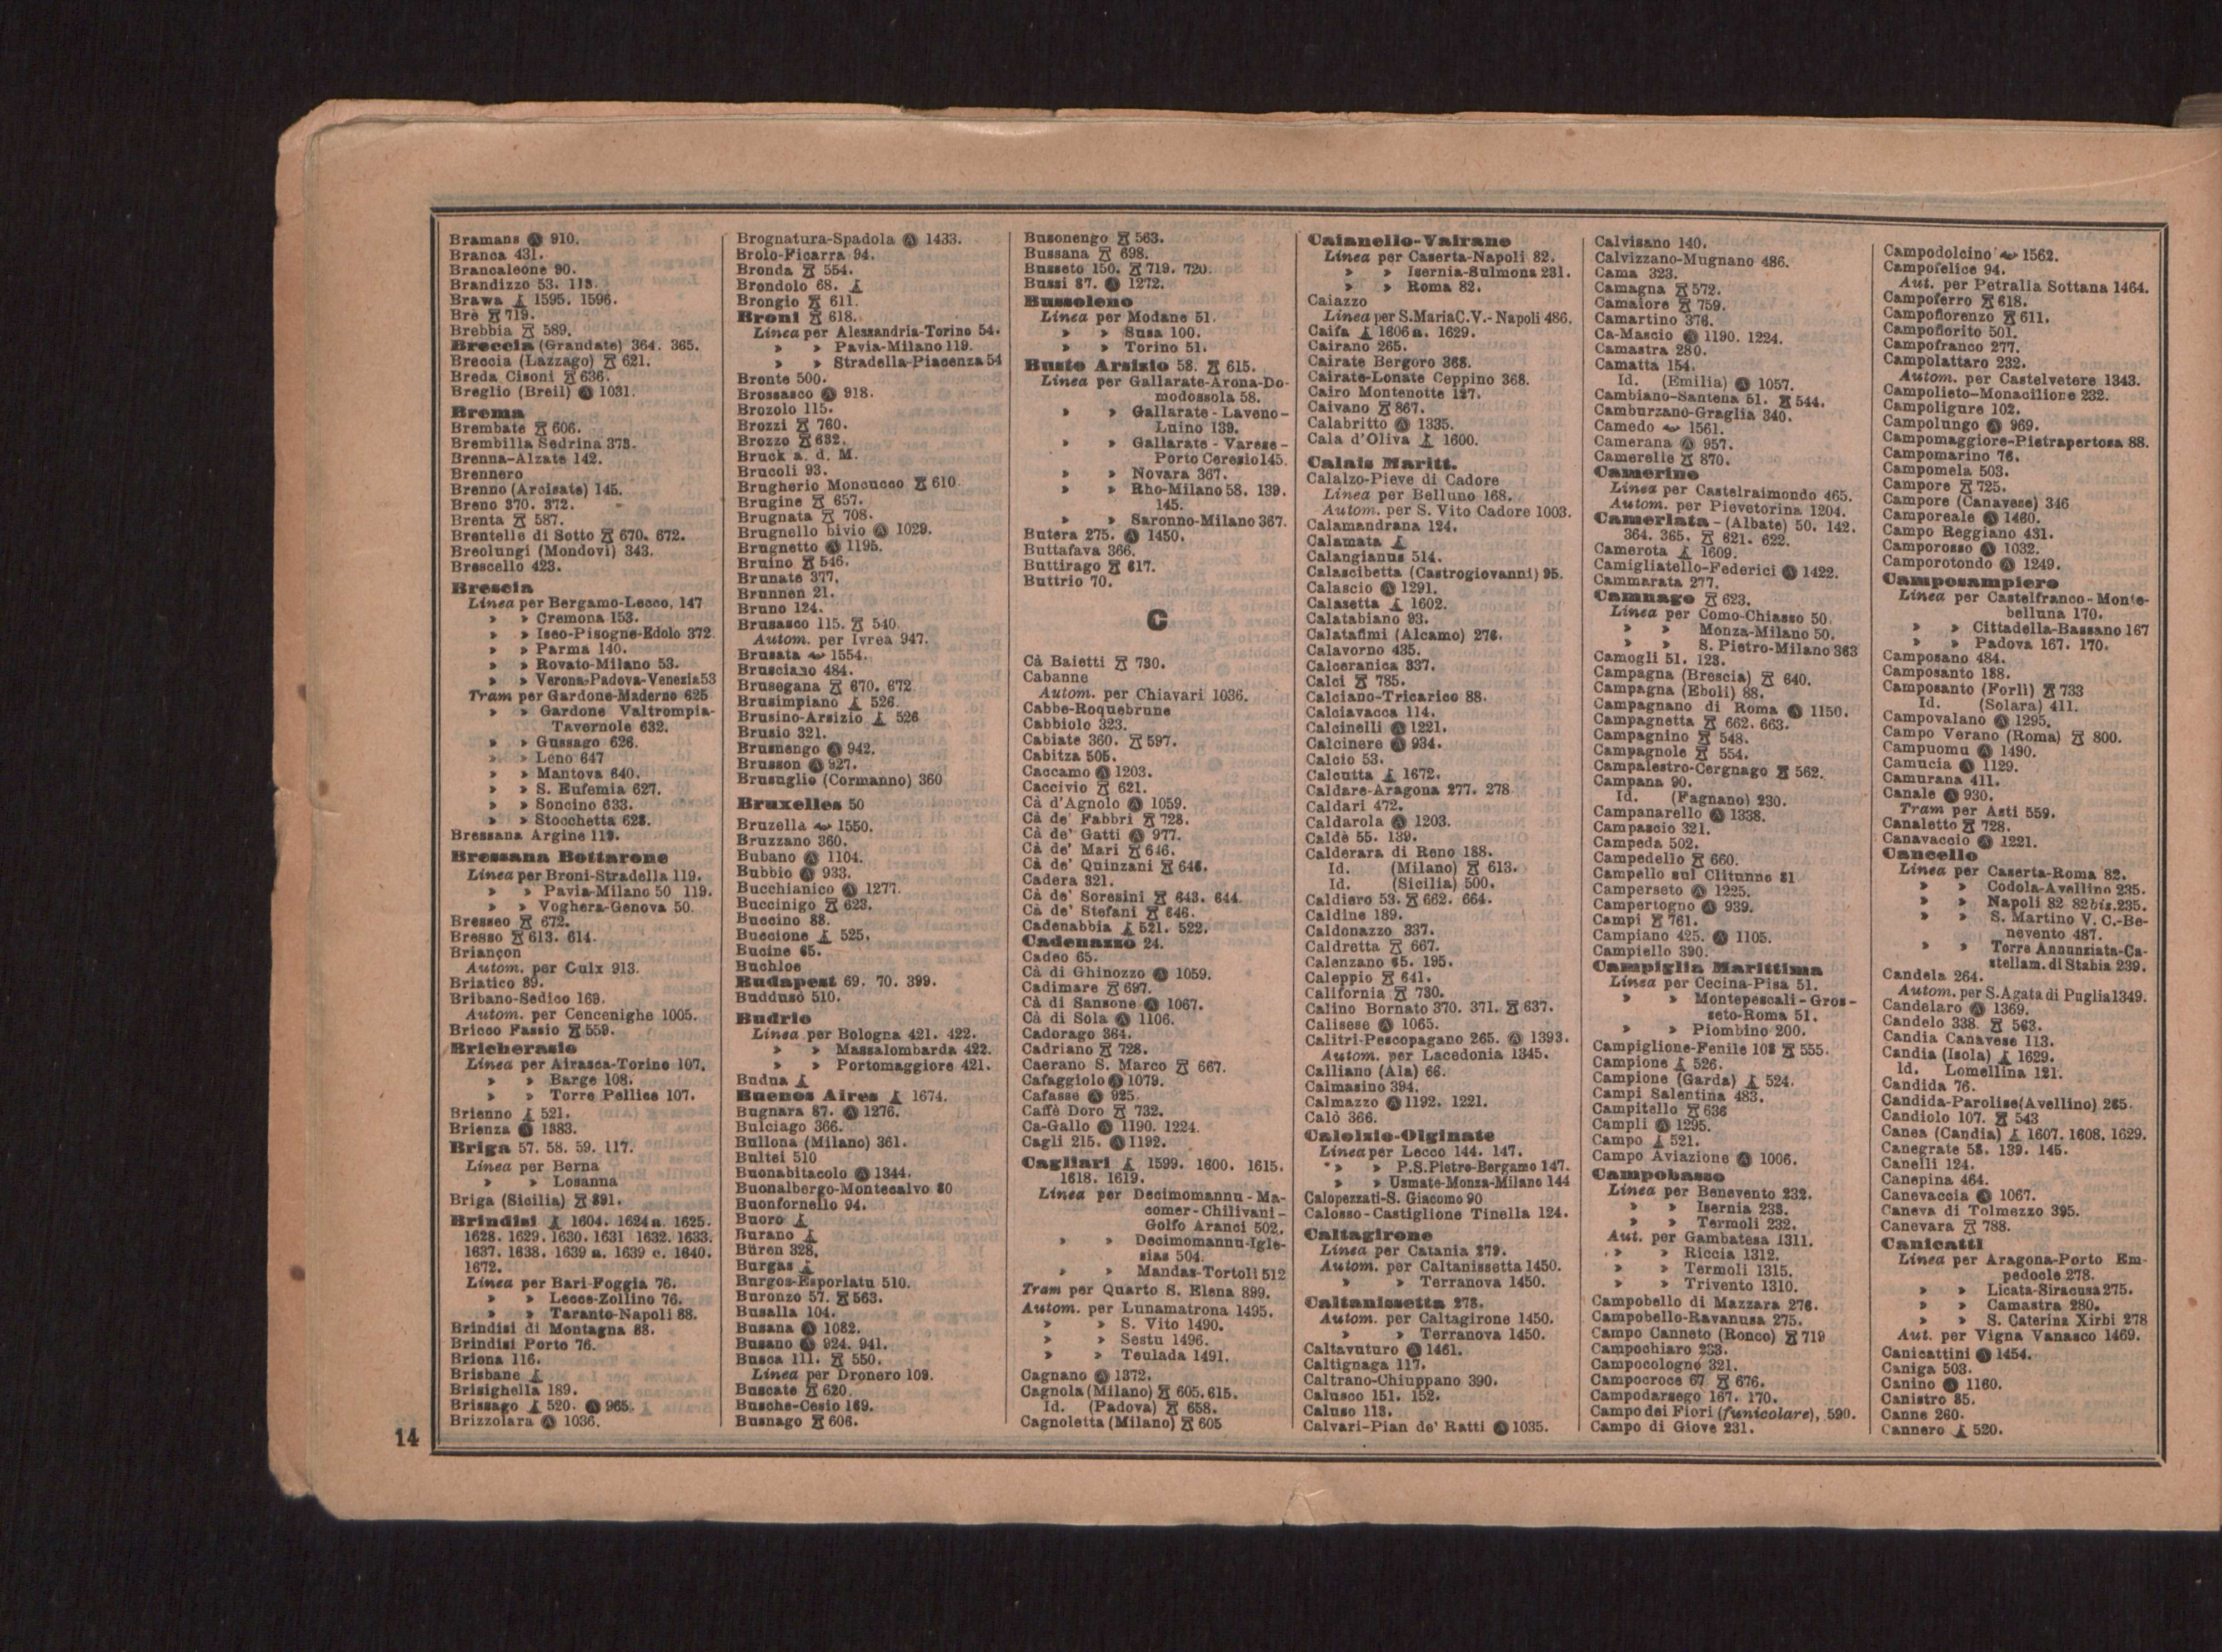 Bramans Ⓐ 910.
Branca 431.
Brancaleone 90.
Brandizzo 53. 113.
Brawa 1595. 1596.
Brè 719.
Brebbia 589.
Breccia (Grandate) 364. 365.
Breccia (Lazzago) 621.
Breda Cisoni 636.
Breglio (Breil) Ⓐ 1031.
Brema
Brembate 606.
Brembilla Sedrina 373.
Brenna-Alzate 142.
Brennero
Brenno (Arcisate) 145.
Breno 370. 372.
Brenta 587.
Brentelle di Sotto 670. 672.
Breolungi (Mondovì) 343.
Brescello 423.
Brescia
Linea per Bergamo-Lecco, 147
» » Cremona 153.
» » Iseo-Pisogne-Edolo 372.
» » Parma 140.
» » Rovato-Milano 53.
» » Verona-Padova-Venezia 53
Tram per Gardone-Maderno 625
» » Gardone Valtrompia-
Tavernole 632.
» » Gussago 626.
» » Leno 647
» » Mantova 640.
» » S. Eufemia 627.
» » Soncino 633.
» » Stocchetta 628.
Bressana Argine 119.
Bressana Bottarone
Linea per Broni-Stradella 119.
» » Pavia-Milano 50 119.
» » Voghera-Genova 50.
Bresseo 672.
Bresso 613. 614.
Briançon
Autom. per Culx 913.
Briatico 89.
Bribano-Sedico 169.
Autom. per Cencenighe 1005.
Bricco Fassio 559.
Bricherasio
Linea per Airasca-Torino 107.
» » Barge 108.
» » Torre Pellice 107.
Brienno 521.
Brienza Ⓐ 1383.
Briga 57. 58. 59. 117.
Linea per Berna
» » Losanna
Briga (Sicilia) 891.
Brindisi 1604. 1624 a. 1625.
1628. 1629. 1630. 1631 1632. 1633.
1637. 1638. 1639 a. 1639 c. 1640.
1672.
Linea per Bari-Foggia 76.
» » Lecce-Zollino 76.
» » Taranto-Napoli 88.
Brindisi di Montagna 88.
Brindisi Porto 76.
Briona 116.
Brisbane
Brisighella 189.
Brissago 520. Ⓐ 965.
Brizzolara Ⓐ 1036.
Brognatura-Spadola Ⓐ 1433.
Brolo-Ficarra 94.
Bronda 554.
Brondolo 68.
Brongio 611.
Broni 618.
Linea per Alessandria-Torino 54.
» » Pavia-Milano 119.
» » Stradella-Piacenza 54
Bronte 500.
Brossasco Ⓐ 918.
Brozolo 115.
Brozzi 760.
Brozzo 632.
Bruck a. d. M.
Brucoli 93.
Brugherio Moncucco 610.
Brugine 657.
Brugnata 708.
Brugnello bivio Ⓐ 1029.
Brugnetto Ⓐ 1195.
Bruino 546.
Brunate 377.
Brunnen 21.
Bruno 124.
Brusasco 115. 540.
Autom. per Ivrea 947.
Brusata 1554.
Brusciano 484.
Brusegana 670. 672
Brusimpiano 526.
Brusino-Arsizio 526
Brusio 321.
Brusnengo Ⓐ 942.
Brusson Ⓐ 927.
Brusuglio (Cormanno) 360
Bruxelles 50
Bruzella 1550.
Bruzzano 360.
Bubano Ⓐ 1104.
Bubbio Ⓐ 933.
Bucchianico Ⓐ 1277.
Buccinigo 623.
Buccino 88.
Buccione 525.
Bucine 65.
Buchloe
Budapest 69. 70. 399.
Buddusò 510.
Budrio
Linea per Bologna 421. 422.
» » Massalombarda 422.
» » Portomaggiore 421.
Budua
Buenos Aires 1674.
Bugnara 87. Ⓐ 1276.
Bulciago 366.
Bullona (Milano) 361.
Bultei 510
Buonabitacolo Ⓐ 1344.
Buonalbergo-Montecalvo 80
Buonfornello 94.
Buoro
Burano
Büren 328,
Burgas
Burgos-Esporlatu 510.
Buronzo 57. 563.
Busalla 104.
Busana Ⓐ 1082.
Busano Ⓐ 924. 941.
Busca 111. 550.
Linea per Dronero 109.
Buscate 620.
Busche-Cesio 169.
Busnago 606.
Busonengo 563.
Bussana 698.
Busseto 150. 719. 720.
Bussi 87. Ⓐ 1272.
Bussoleno
Linea per Modane 51.
» » Susa 100.
» » Torino 51.
Busto Arsizio 58. 615.
Linea per Gallarate-Arona-Do-
modossola 58.
» » Gallarate-Laveno-
Luino 139.
» » Gallarate-Varese-
Porto Ceresio 145.
» » Novara 367.
» » Rho-Milano 58. 139.
145.
» » Saronno-Milano 367.
Butera 275. Ⓐ 1450.
Buttafava 366.
Buttirago 617.
Buttrio 70.
C
Cà Baietti 730.
Cabanne
Autom. per Chiavari 1036.
Cabbe-Roquebrune
Cabbiolo 323.
Cabiate 360. 597.
Cabitza 505.
Caccamo Ⓐ 1203.
Caccivio 621.
Cà d'Agnolo Ⓐ 1059.
Cà de' Fabbri 728.
Cà de' Gatti Ⓐ 977.
Cà de' Mari 646.
Cà de' Quinzani 646.
Cadera 321.
Cà de' Soresini 643. 644.
Cà de' Stefani 646.
Cadenabbia 521. 522.
Cadenazzo 24.
Cadeo 65.
Cà di Ghinozzo Ⓐ 1059.
Cadimare 697.
Cà di Sansone Ⓐ 1067.
Cà di Sola Ⓐ 1106.
Cadorago 364.
Cadriano 728.
Caerano S. Marco 667.
Cafaggiolo Ⓐ 1079.
Cafasse Ⓐ 925.
Caffè Doro 732.
Ca-Gallo Ⓐ 1190. 1224.
Cagli 215. Ⓐ 1192.
Cagliari 1599. 1600. 1615.
1618. 1619.
Linea per Decimomannu-Ma-
comer-Chilivani-
Golfo Aranci 502.
» » Decimomannu-Igle-
sias 504.
» » Mandas-Tortoli 512
Tram per Quarto S. Elena 899.
Autom. per Lunamatrona 1495.
» » S. Vito 1490.
» » Sestu 1496.
» » Teulada 1491.
Cagnano Ⓐ 1372.
Cagnola (Milano) 605. 615.
Id. (Padova) 658.
Cagnoletta (Milano) 605
Caianello-Vairano
Linea per Caserta-Napoli 82.
» » Isernia-Sulmona 231.
» » Roma 82.
Caiazzo
Linea per S. Maria C. V.-Napoli 486.
Caifa 1606 a. 1629.
Cairano 265.
Cairate Bergoro 368.
Cairate-Lonate Ceppino 368.
Cairo Montenotte 127.
Caivano 867.
Calabritto Ⓐ 1335.
Cala d'Oliva 1600.
Calais Maritt.
Calalzo-Pieve di Cadore
Linea per Belluno 168.
Autom. per S. Vito Cadore 1003.
Calamandrana 124.
Calamata
Calangianus 514.
Calascibetta (Castrogiovanni) 95.
Calascio Ⓐ 1291.
Calasetta 1602.
Calatabiano 93.
Calatafimi (Alcamo) 276.
Calavorno 435.
Calceranica 337.
Calci 785.
Calciano-Tricarico 88.
Calciavacca 114.
Calcinelli Ⓐ 1221.
Calcinere Ⓐ 934.
Calcio 53.
Calcutta 1672.
Caldare-Aragona 277. 278
Caldari 472.
Caldarola Ⓐ 1203.
Caldè 55. 139.
Calderara di Reno 188.
Id. (Milano) 613.
Id. (Sicilia) 500.
Caldiero 53. 662. 664.
Caldine 189.
Caldonazzo 337.
Caldretta 667.
Calenzano 65. 195.
Caleppio 641.
California 730.
Calino Bornato 370. 371. 637.
Calisese Ⓐ 1065.
Calitri-Pescopagano 265. Ⓐ 1393.
Autom. per Lacedonia 1345.
Calliano (Ala) 66.
Calmasino 394.
Calmazzo Ⓐ 1192. 1221.
Calò 366.
Calolzio-Olginate
Linea per Lecco 144. 147.
» » P.S. Pietro-Bergamo 147.
» » Usmate-Monza-Milano 144
Calopezzati-S. Giacomo 90
Calosso-Castiglione Tinella 124.
Caltagirone
Linea per Catania 279.
Autom. per Caltanissetta 1450.
» » Terranova 1450.
Caltanissetta 278.
Autom. per Caltagirone 1450.
» » Terranova 1450.
Caltavuturo Ⓐ 1461.
Caltignaga 117.
Caltrano-Chiuppano 390.
Calusco 151. 152.
Caluso 113.
Calvari-Pian de' Ratti Ⓐ 1035.
Calvisano 140.
Calvizzano-Mugnano 486.
Cama 323.
Camagna 572.
Camaiore 759.
Camartino 376.
Ca-Mascio Ⓐ 1190. 1224.
Camastra 280.
Camatta 154.
Id. (Emilia) Ⓐ 1057.
Cambiano-Santena 51. 544.
Camburzano-Graglia 340.
Camedo 1561.
Camerana Ⓐ 957.
Camerelle 870.
Camerino
Linea per Castelraimondo 465.
Autom. per Pievetorina 1204.
Camerlata-(Albate) 50. 142.
364. 365. 621. 622.
Camerota 1609.
Camigliatello-Federici Ⓐ 1422.
Cammarata 277.
Camnago 623.
Linea per Como-Chiasso 50.
» » Monza-Milano 50.
» » S. Pietro-Milano 363
Camogli 51. 123.
Campagna (Brescia) 640.
Campagna (Eboli) 88.
Campagnano di Roma Ⓐ 1150.
Campagnetta 662. 663.
Campagnino 548.
Campagnole 554.
Campalestro-Cergnago 562.
Campana 90.
Id. (Fagnano) 230.
Campanarello Ⓐ 1338.
Campascio 321.
Campeda 502.
Campedello 660.
Campello sul Clitunno 81
Camperseto Ⓐ 1225.
Campertogno Ⓐ 939.
Campi 761.
Campiano 425. Ⓐ 1105.
Campiello 390.
Campiglia Marittima
Linea per Cecina-Pisa 51.
» » Montepescali-Gros-
seto-Roma 51.
» » Piombino 200.
Campiglione-Fenile 108 555.
Campione 526.
Campione (Garda) 524.
Campi Salentina 483.
Campitello 636
Campli Ⓐ 1295.
Campo 521.
Campo Aviazione Ⓐ 1006.
Campobasso
Linea per Benevento 232.
» » Isernia 233.
» » Termoli 232.
Aut. per Gambatesa 1311.
» » Riccia 1312.
» » Termoli 1315.
» » Trivento 1310.
Campobello di Mazzara 276.
Campobello-Ravanusa 275.
Campo Canneto (Ronco) 719
Campochiaro 233.
Campocologno 321.
Campocroce 67 676.
Campodarsego 167. 170.
Campo dei Fiori (funicolare), 590.
Campo di Giove 231.
Campodolcino 1562.
Campofelice 94.
Aut. per Petralia Sottana 1464.
Campoferro 618.
Campoflorenzo 611.
Campoflorito 501.
Campofranco 277.
Campolattaro 232.
Autom. per Castelvetere 1343.
Campolieto-Monacilione 232.
Campoligure 102.
Campolungo Ⓐ 969.
Campomaggiore-Pietrapertosa 88.
Campomarino 76.
Campomela 503.
Campore 725.
Campore (Canavese) 346
Camporeale Ⓐ 1460.
Campo Reggiano 431.
Camporosso Ⓐ 1032.
Camporotondo Ⓐ 1249.
Camposampiero
Linea per Castelfranco-Monte-
belluna 170.
» » Cittadella-Bassano 167
» » Padova 167. 170.
Camposano 484.
Camposanto 188.
Camposanto (Forlì) 733
Id. (Solara) 411.
Campovalano Ⓐ 1295.
Campo Verano (Roma) 800.
Campuomu Ⓐ 1490.
Camucia Ⓐ 1129.
Camurana 411.
Canale Ⓐ 930.
Tram per Asti 559.
Canaletto 728.
Canavaccio Ⓐ 1221.
Cancello
Linea per Caserta-Roma 82.
» » Codola-Avellino 235.
» » Napoli 82 82bis. 235.
» » S. Martino V. C.-Be-
nevento 487.
» » Torre Annunziata-Ca-
stellam. di Stabia 239.
Candela 264.
Autom. per S. Agata di Puglia 1349.
Candelaro Ⓐ 1369.
Candelo 338. 563.
Candia Canavese 113.
Candia (Isola) 1629.
Id. Lomellina 121.
Candida 76.
Candida-Parolise (Avellino) 265.
Candiolo 107. 543
Canea (Candia) 1607. 1608. 1629.
Canegrate 58. 139. 145.
Canelli 124.
Canepina 464.
Canevaccia Ⓐ 1067.
Caneva di Tolmezzo 395.
Canevara 788.
Canicattì
Linea per Aragona-Porto Em-
pedocle 278.
» » Licata-Siracusa 275.
» » Camastra 280.
» » S. Caterina Xirbi 278
Aut. per Vigna Vanasco 1469.
Canicattini Ⓐ 1454.
Caniga 503.
Canino Ⓐ 1160.
Canistro 85.
Canne 260.
Cannero 520.
14